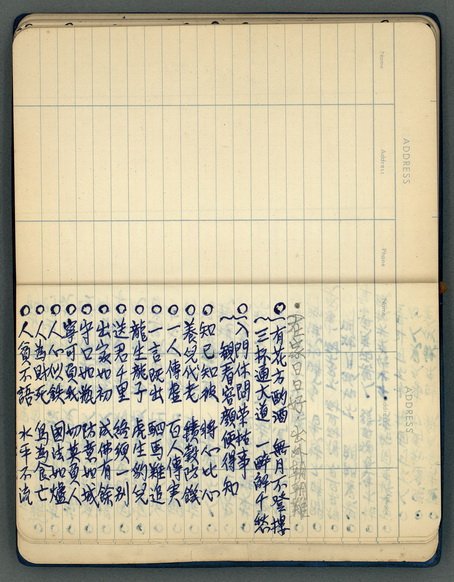 ADDRESS
Name
Address
Phone
ADDRESS
Name
在家日日好 出外朝朝難
有花方酌酒 無月不登樓
三杯通大道 一醉解千愁
入門休問榮枯事
觀看容顏便得知
知己知彼 將心比心
養兒代老 積穀防饑
一人傳虛 百人傳實
一言既出 駟馬難追
龍生龍子 虎生豹兒
送君千里 終須一別
出家如初 成佛有餘
守口如瓶 防意如城
寧可負我 切莫負人
人心似鉄 國法如爐
人為財死 鳥為食亡
人貧不語 水平不流